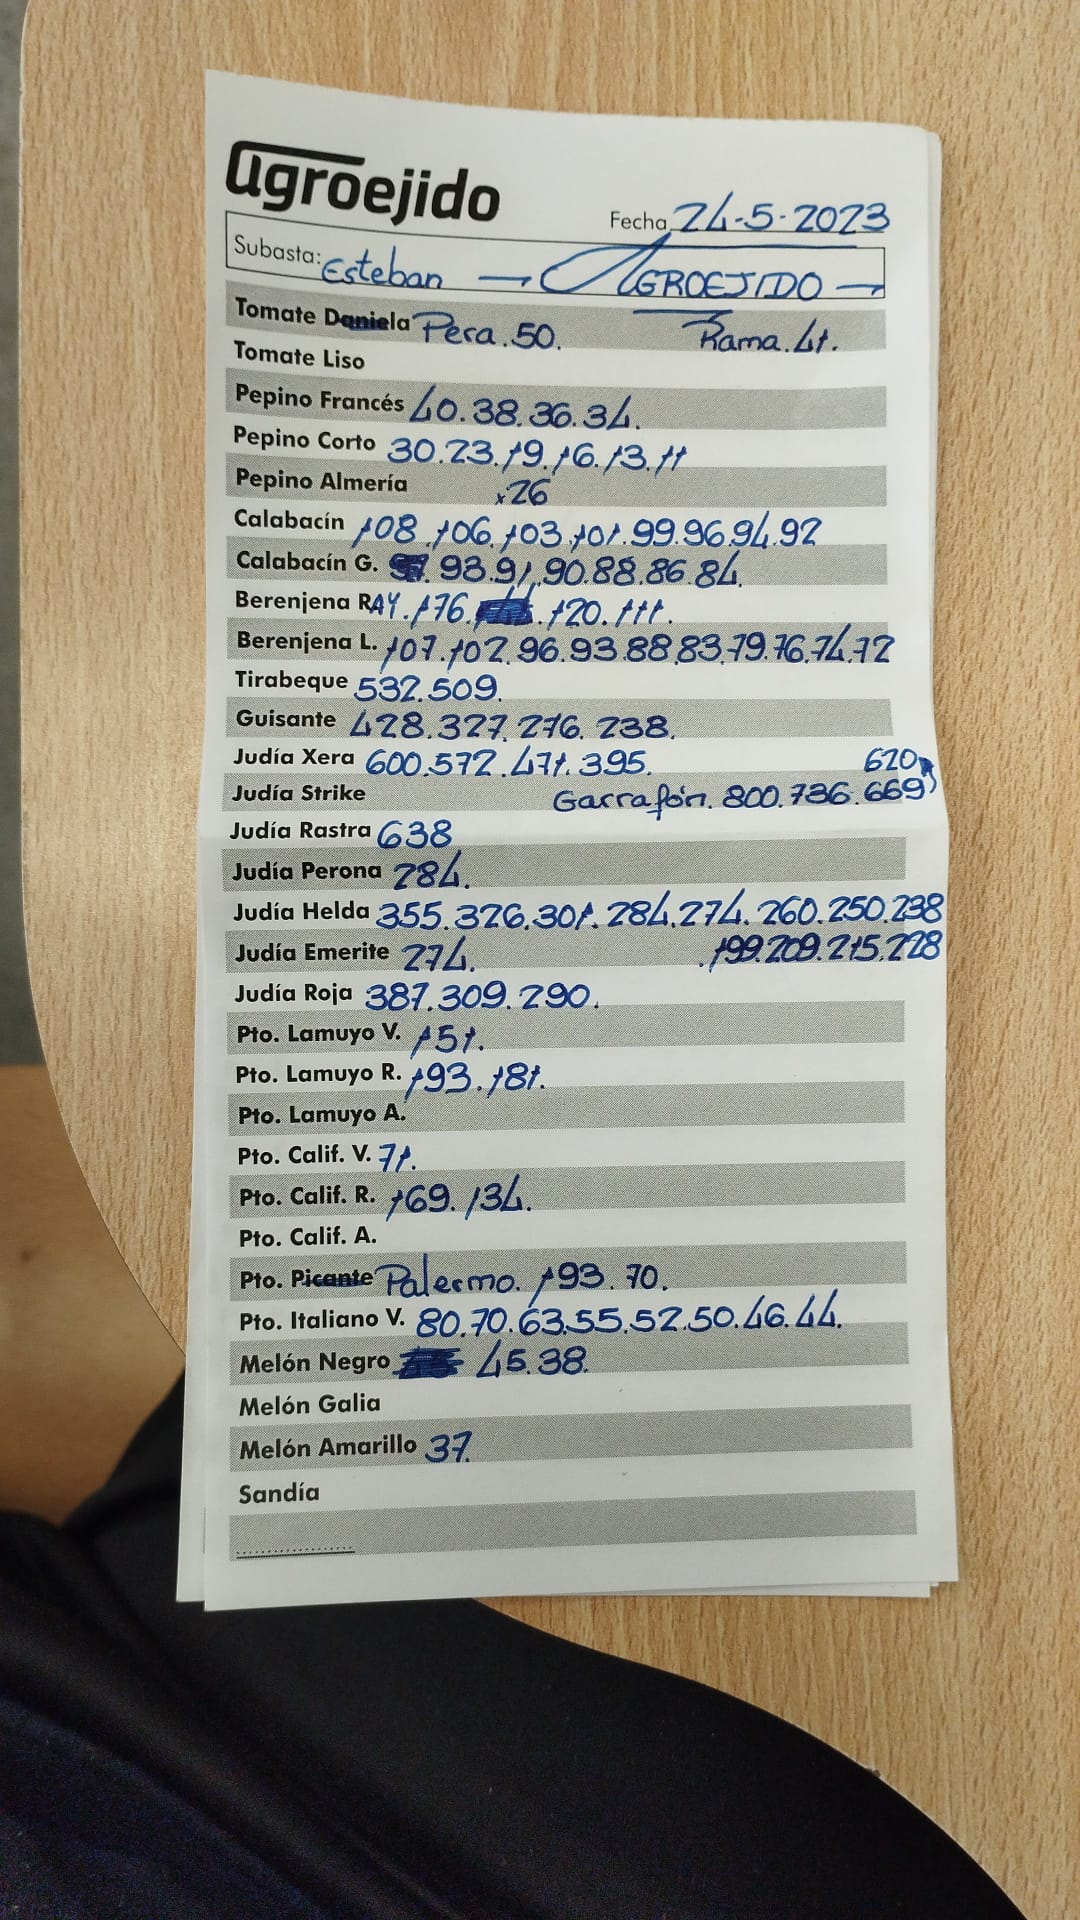 agroejido
Fecha 24-5-2023
Subasta: Esteban → AGROEJIDO →
Tomate Daniela Pera. 50. Rama. 41.
Tomate Liso
Pepino Francés 40.38.36.34.
Pepino Corto 30.23.19.16.13.11
Pepino Almería x26
Calabacín 108.106.103.101.99.96.94.92
Calabacín G. 93.91.90.88.86.84.
Berenjena RAY. 176. 120. 111.
Berenjena L. 107.102.96.93.88.83.79.76.74.72
Tirabeque 532.509.
Guisante 428.327.276.238.
Judía Xera 600.572.471.395. 620
Judía Strike Garrafón. 800.736.669
Judía Rastra 638
Judía Perona 284.
Judía Helda 355.326.301.284.274.260.250.238
Judía Emerite 274. .199.209.215.228
Judía Roja 387.309.290.
Pto. Lamuyo V. 151.
Pto. Lamuyo R. 193.181.
Pto. Lamuyo A.
Pto. Calif. V. 71.
Pto. Calif. R. 169.134.
Pto. Calif. A.
Pto. Picante Palermo. 193.70.
Pto. Italiano V. 80.70.63.55.52.50.46.44.
Melón Negro 45.38.
Melón Galia
Melón Amarillo 37.
Sandía